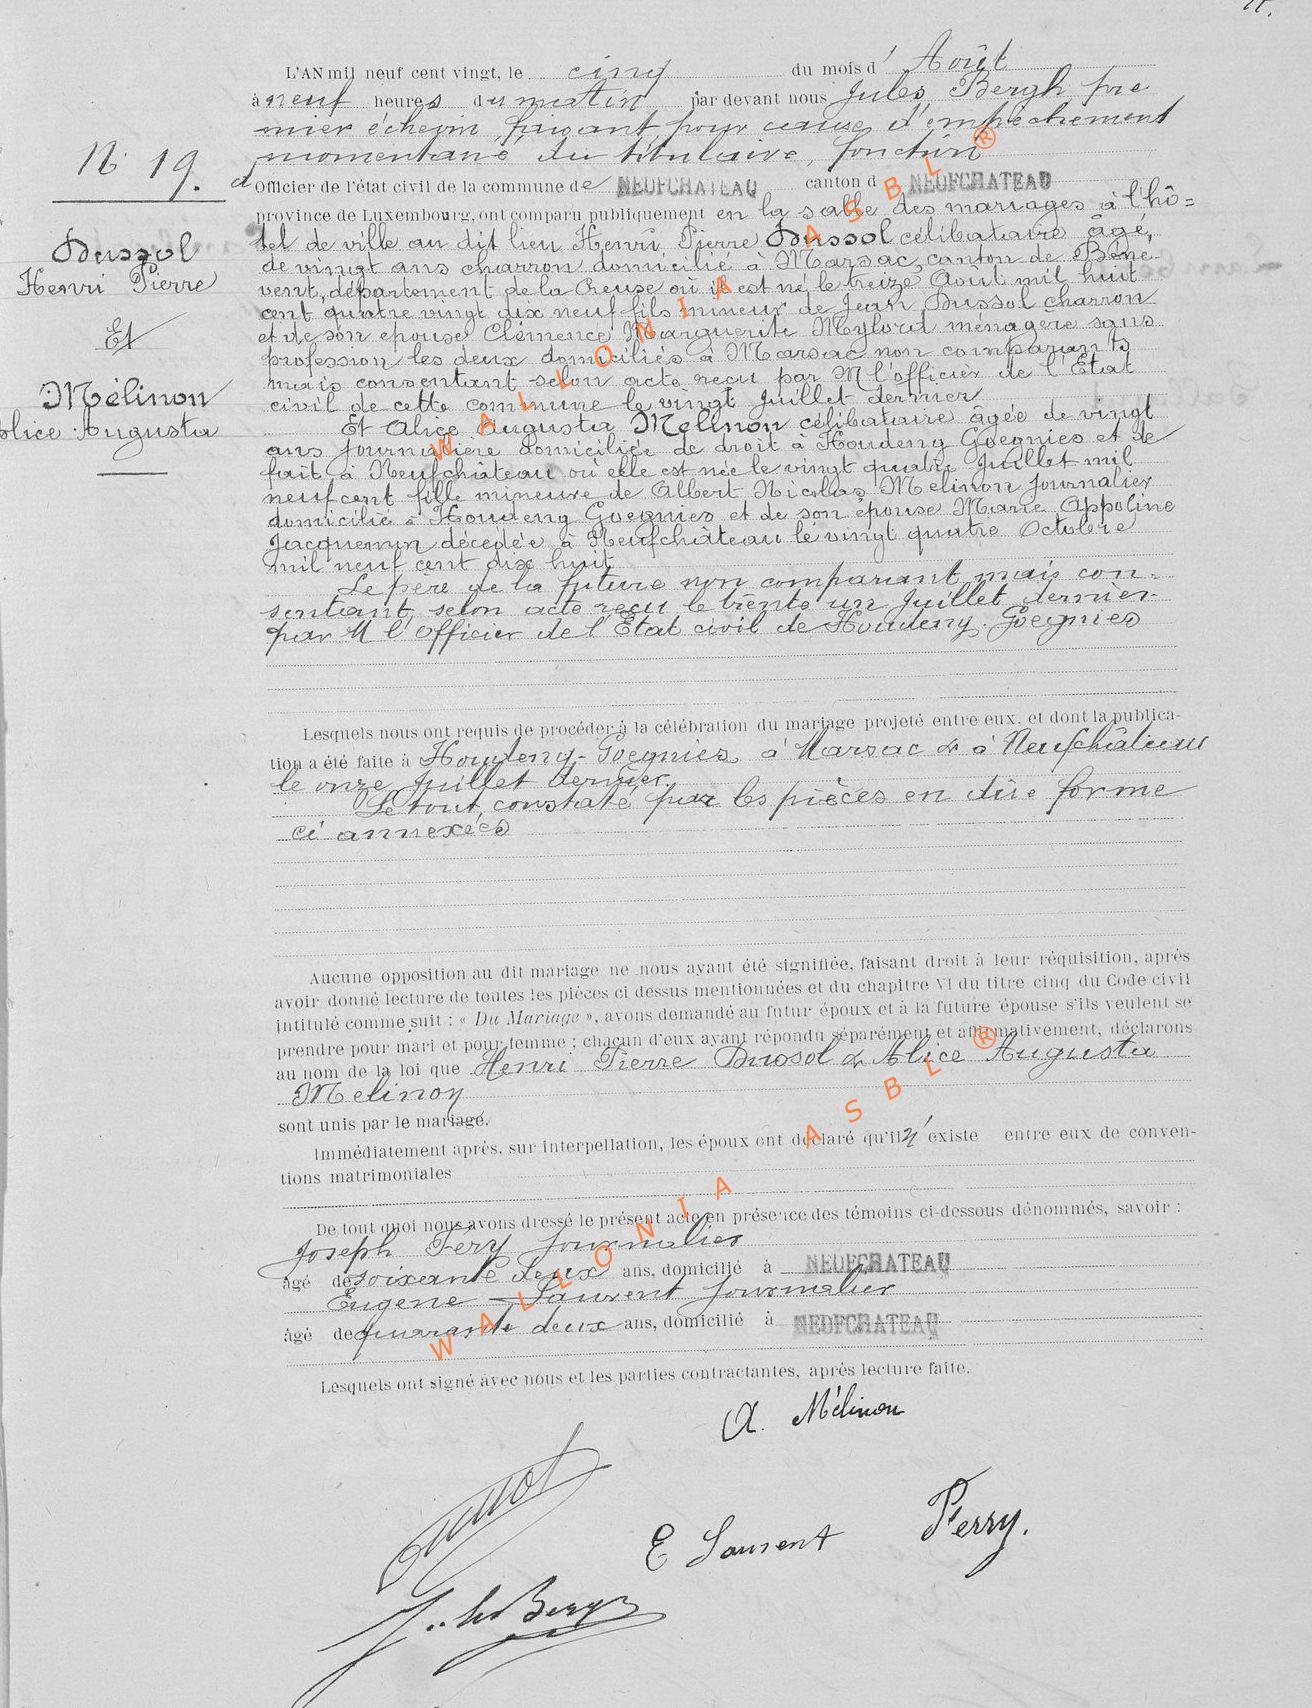 L'AN mil neuf cent vingt, le cinq du mois d' Août
à neuf heures du matin par devant nous Jules Bergh pre
mier échevin faisant pour cause d'empêchement
momentané du titulaire, fonction
N° 19.
d'Officier de l'état civil de la commune de NEUFCHATEAU canton d NEUFCHATEAU
province de Luxembourg, ont comparu publiquement en la salle des mariages à l'hô=
tel de ville au dit lieu Henri Pierre Dussol célibataire âgé,
de vingt ans charron domicilié à Marsac, canton de Béné
vent, département de la Creuse où il est né le treize Août mil huit
cent quatre vingt dix neuf fils mineur de Jean Dussol charron
et de son epouse Clémence Marguerite Mylord ménagère sans
profession les deux domiciliés à Marsac non comparants
mais consentant selon acte reçu par M l'officier de l'Etat
civil de cette commune le vingt Juillet dernier
Dussol
Henri Pierre
Et
Mélinon
Alice Augusta
Et Alice Augusta Mélinon célibataire âgée de vingt
ans journalière domiciliée de droit à Houdeng Goegnies et de
fait à Neufchâteau où elle est née le vingt quatre Juillet mil
neuf cent fille mineure de Albert Nicolas Melinon journalier
domicilié à Houdeng Goegnies et de son épouse Marie Appoline
Jacquemin décédée à Neufchâteau le vingt quatre Octobre
mil neuf cent dix huit
Le père de la future non comparant mais con-
sentant, selon acte reçu le trente un Juillet dernier
par M l'Officier de l'Etat civil de Houdeng-Goegnies
Lesquels nous ont requis de procéder à la célébration du mariage projeté entre eux, et dont la publica-
tion a été faite à Houdeng-Goegnies à Marsac & à Neufchâteau
le onze Juillet dernier
Le tout constaté par les pièces en due forme
ci annexées
Aucune opposition au dit mariage ne nous ayant été signifiée, faisant droit à leur réquisition, après
avoir donné lecture de toutes les pièces ci dessus mentionnées et du chapitre VI du titre cinq du Code civil
intitulé comme suit : « Du Mariage », avons demandé au futur époux et à la future épouse s'ils veulent se
prendre pour mari et pour femme ; chacun d'eux ayant répondu séparément et affirmativement, déclarons
au nom de la loi que Henri Pierre Dussol & Alice Augusta
Melinon
sont unis par le mariage.
Immédiatement après, sur interpellation, les époux ont déclaré qu'il n'existe entre eux de conven-
tions matrimoniales
De tout quoi nous avons dressé le présent acte en présence des témoins ci-dessous dénommés, savoir :
Joseph Féry journalier
âgé de soixante deux ans, domicilié à NEUFCHATEAU
Eugène Laurent journalier
âgé de quarante deux ans, domicilié à NEUFCHATEAU
Lesquels ont signé avec nous et les parties contractantes, après lecture faite.
A. Mélinon
Dussol
E Laurent
Ferry.
WALLONIA ASBL ®
WALLONIA ASBL ®